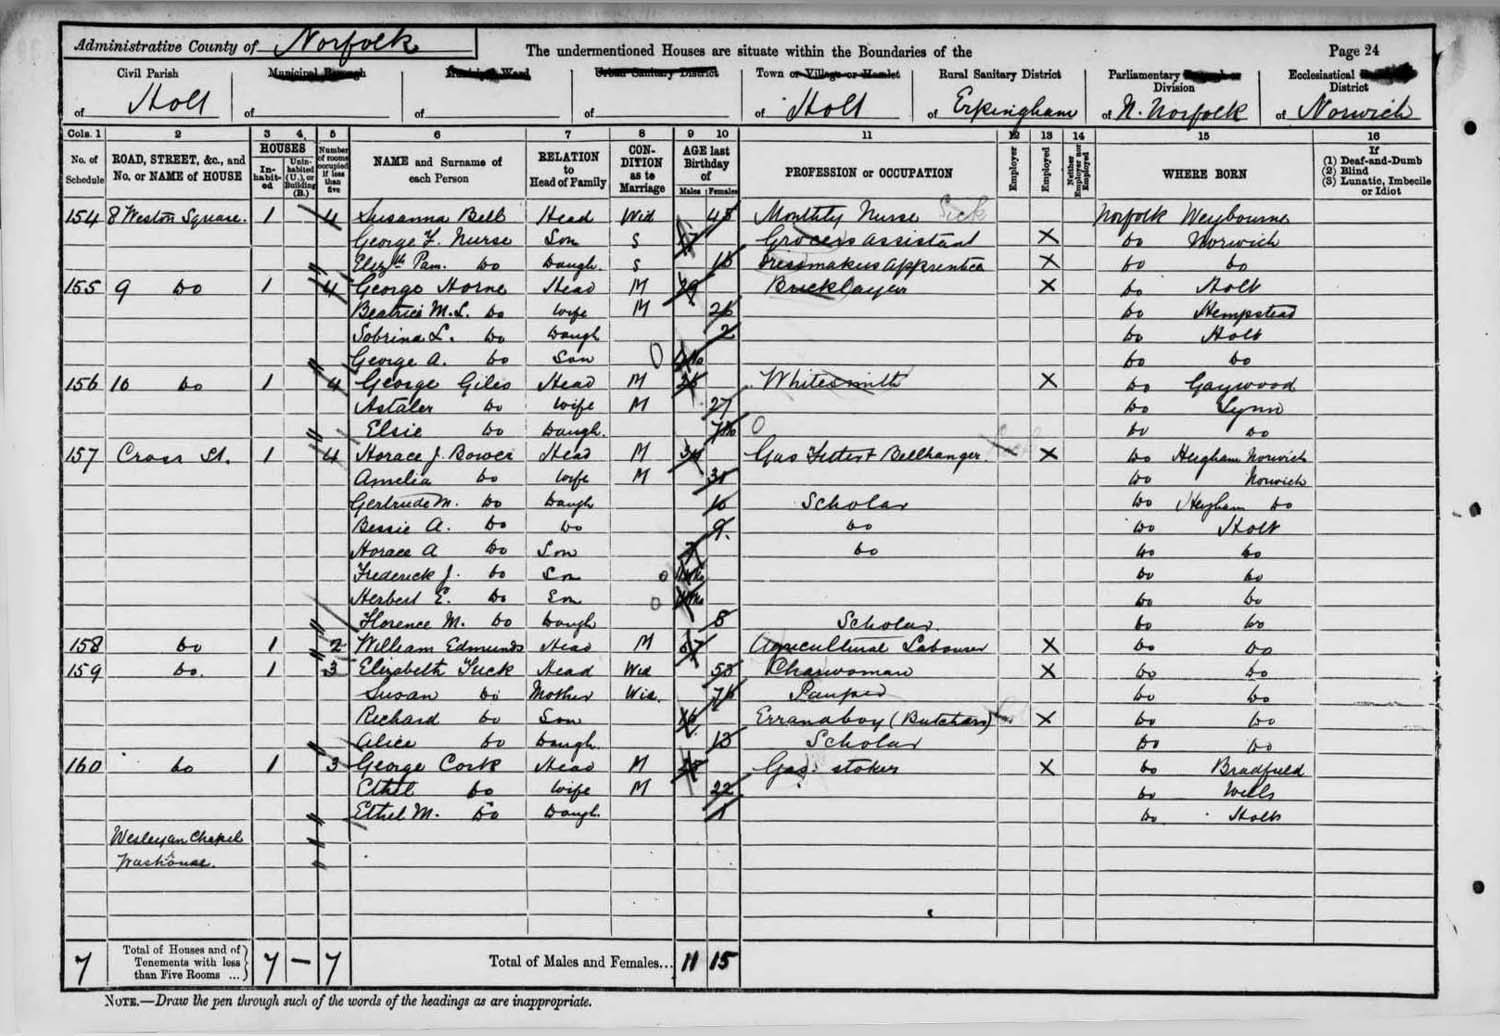 Administrative County of Norfolk
The undermentioned Houses are situate within the Boundaries of the
Page 24
Civil Parish of Holt
Municipal Borough of
Municipal Ward of
Urban Sanitary District of
Town or Village or Hamlet of Holt
Rural Sanitary District of Erpingham
Parliamentary Division of N. Norfolk
Ecclesiastical District of Norwich
Cols. 1 2 3 4 5 6 7 8 9 10 11 12 13 14 15 16
No. of Schedule
ROAD, STREET, &c., and No. or NAME of HOUSE
HOUSES
In-habit-ed
Unin-habited (U.), or Building (B.)
Number of rooms occupied if less than five
NAME and Surname of each Person
RELATION to Head of Family
CON-DITION as to Marriage
AGE last Birthday of
Males Females
PROFESSION or OCCUPATION
Employer
Employed
Neither Employer nor Employed
WHERE BORN
If
(1) Deaf-and-Dumb
(2) Blind
(3) Lunatic, Imbecile or Idiot
154 8 Weston Square. 1 4 Susanna Bell Head Wid Monthly Nurse Sick Norfolk Weybourne
George F. Nurse Son S 17 Grocers assistant X Do Norwich
Elizth Pam. Do Daugh. S Dressmakers apprentice X Do Do
155 9 Do 1 4 George Horne Head M 29 Bricklayer X Do Holt
Beatrice M.L. Do Wife M 26 Do Hempstead
Sobrina L. Do Daugh 2 Do Holt
George A. Do Son Do Do
156 10 Do 1 4 George Giles Head M Whitesmith X Do Gaywood
Do Wife M 27 Do Lynn
Elsie Do Daugh. Do Do
157 Cross St. 1 4 Horace J. Head M Gas Fitter & Bellhanger X Do Heigham Norwich
Amelia Do Wife M Do Norwich
Gertrude M. Do Daugh 10 Scholar Do Heigham Do
Bessie A. Do Do 9 Do Do Holt
Horace A Do Son 7 Do Do Do
Frederick J. Do Son Do Do
Herbert E. Do Son Do Do
Florence M. Do Daugh Scholar. Do Do
158 Do 1 2 William Edmunds Head M 67 Agricultural Labourer X Do Do
159 Do. 1 3 Elizabeth Tuck Head Wid Charwoman X Do Do
Susan Do Mother Wid. Pauper Do Do
Richard Do Son Errandboy (Butchers) X Do Do
Alice Do Daugh. 13 Scholar Do Do
160 Do 1 3 George Cork Head M Gas stoker X Do Bradfield
Ethel Do Wife M 22 Do Wells
Ethel M. Do Daugh. 1 Do Holt
Wesleyan Chapel
Washouse.
7 Total of Houses and of Tenements with less than Five Rooms ... 7 – 7 Total of Males and Females... 11 15
NOTE.—Draw the pen through such of the words of the headings as are inappropriate.